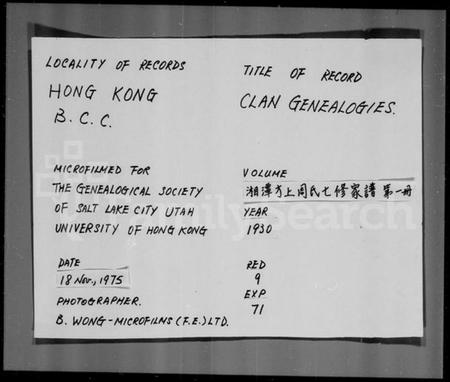 LOCALITY OF RECORDS
HONG KONG
B.C.C.
TITLE OF RECORD
CLAN GENEALOGIES.
MICROFILMED FOR
THE GENEALOGICAL SOCIETY
OF SALT LAKE CITY UTAH
UNIVERSITY OF HONG KONG
VOLUME
湘潭方上周氏七修家譜 第一冊
YEAR
1930
DATE
18 Nov., 1975
PHOTOGRAPHER.
B. WONG-MICROFILMS (F.E.) LTD.
RED
9
EXP
71
FamilySearch